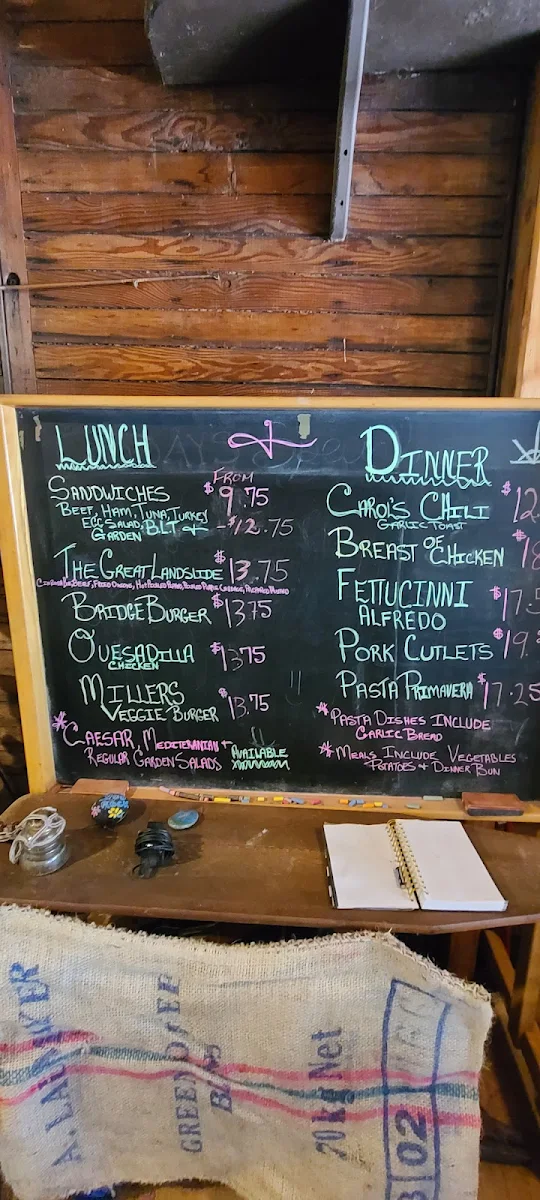 LUNCH
SANDWICHES FROM $9.75
BEEF, HAM, TUNA, TURKEY
EGG SALAD, BLT + -$12.75
GARDEN
THE GREAT LANDSLIDE $13.75
BRIDGE BURGER $13.75
QUESADILLA $13.75
CHICKEN
MILLERS
VEGGIE BURGER $13.75
*CAESAR, MEDITERANIAN +
REGULAR GARDEN SALADS AVAILABLE
DINNER
CAROL'S CHILI $12.
GARLIC TOAST
BREAST OF CHICKEN $18
FETTUCINNI $17.5
ALFREDO
PORK CUTLETS $19.
PASTA PRIMAVERA $17.25
*PASTA DISHES INCLUDE
GARLIC BREAD
*MEALS INCLUDE VEGETABLES
POTATOES + DINNER BUN
GREEN
70 kg Net
02